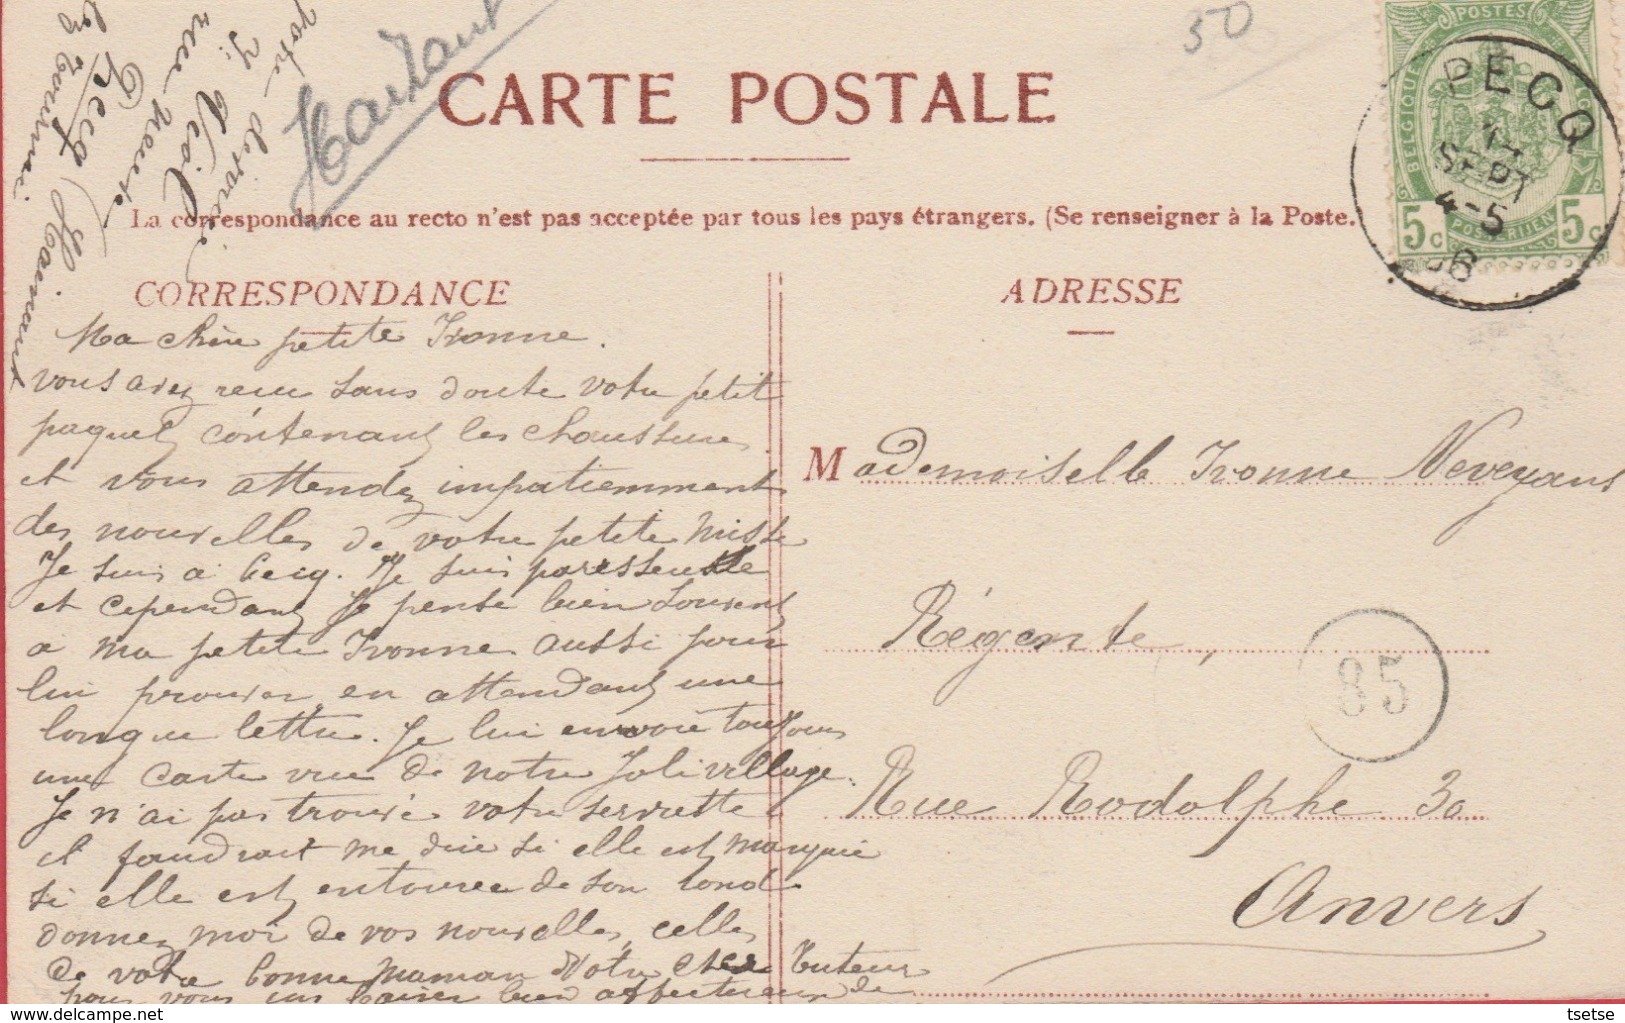 50
Hainaut
CARTE POSTALE
La correspondance au recto n'est pas acceptée par tous les pays étrangers. (Se renseigner à la Poste.)
POSTES
BELGIQUE
5 c
POSTERIJEN
5 c
PECQ
SEPT
4-5
06
CORRESPONDANCE
Ma chère petite Ivonne.
vous avez recu sans doute votre petit
paquet contenant les chaussures
et vous attendez impatiemment
des nouvelles de votre petite Misse
Je suis à Pecq. Je suis paresseuse
et cependant Je pense bien souvent
a ma petite Ivonne aussi pour
lui prouver en attendant une
longue lettre. Je lui envoie toujours
une carte vue de notre Joli village.
Je n'ai pas trouvé votre serviette
il faudrait me dire si elle est marquée
si elle est entourée de son
donnez moi de vos nouvelles, celles
de votre bonne maman Votre cher tuteur
pour vous un baiser bien affectueux de
votre
rue neuve
Pecq (Hainaut
ADRESSE
Mademoiselle Ivonne Neveyans
Régente,
85
Rue Rodolphe 30
Anvers
tsetse